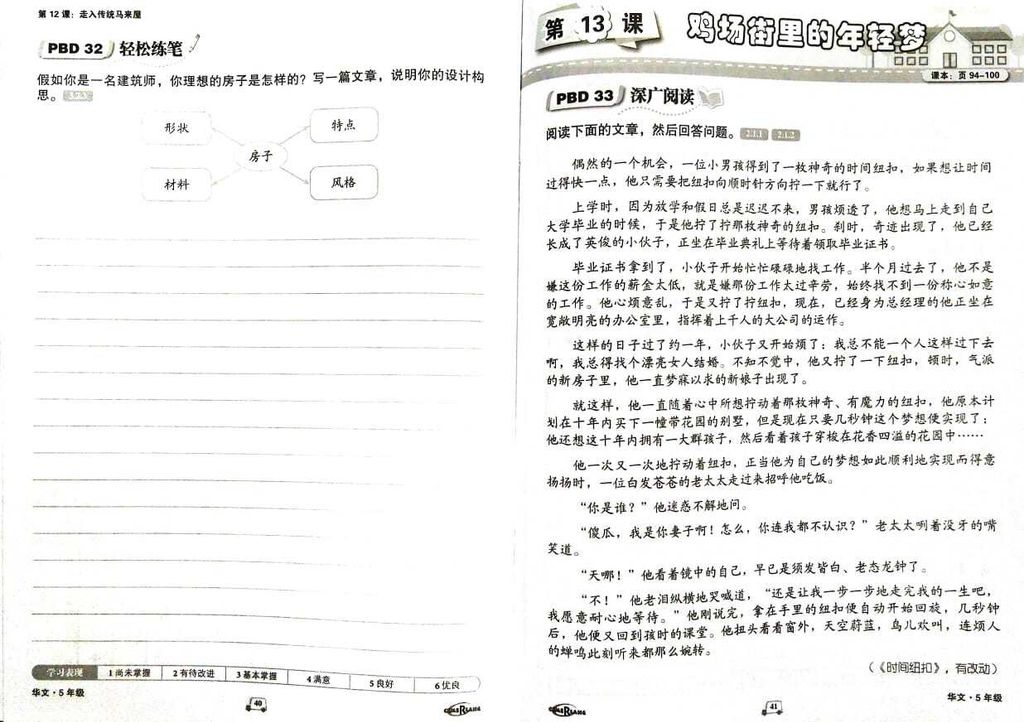 第 12 课：走入传统马来屋
PBD 32 轻松练笔
假如你是一名建筑师，你理想的房子是怎样的？写一篇文章，说明你的设计构
思。
形状
特点
房子
材料
风格
学习表现 1 尚未掌握 2 有待改进 3 基本掌握 4 满意 5 良好 6 优良
华文·5 年级
40
第 13 课 鸡场街里的年轻梦
课本：页 94-100
PBD 33 深广阅读
阅读下面的文章，然后回答问题。 2.1.1 2.1.2
偶然的一个机会，一位小男孩得到了一枚神奇的时间纽扣，如果想让时间
过得快一点，他只需要把纽扣向顺时针方向拧一下就行了。
上学时，因为放学和假日总是迟迟不来，男孩烦透了，他想马上走到自己
大学毕业的时候，于是他拧了拧那枚神奇的纽扣。刹时，奇迹出现了，他已经
长成了英俊的小伙子，正坐在毕业典礼上等待着领取毕业证书。
毕业证书拿到了，小伙子开始忙忙碌碌地找工作。半个月过去了，他不是
嫌这份工作的薪金太低，就是嫌那份工作太过辛劳，始终找不到一份称心如意
的工作。他心烦意乱，于是又拧了拧纽扣，现在，已经身为总经理的他正坐在
宽敞明亮的办公室里，指挥着上千人的大公司的运作。
这样的日子过了约一年，小伙子又开始烦了：我总不能一个人这样过下去
啊，我总得找个漂亮女人结婚。不知不觉中，他又拧了一下纽扣，顿时，气派
的新房子里，他一直梦寐以求的新娘子出现了。
就这样，他一直随着心中所想拧动着那枚神奇、有魔力的纽扣，他原本计
划在十年内买下一幢带花园的别墅，但是现在只要几秒钟这个梦想便实现了；
他还想这十年内拥有一大群孩子，然后看着孩子穿梭在花香四溢的花园中……
他一次又一次地拧动着纽扣，正当他为自己的梦想如此顺利地实现而得意
扬扬时，一位白发苍苍的老太太走过来招呼他吃饭。
“你是谁？”他迷惑不解地问。
“傻瓜，我是你妻子啊！怎么，你连我都不认识？”老太太咧着没牙的嘴
笑道。
“天哪！”他看着镜中的自己，早已是须发皆白、老态龙钟了。
“不！”他老泪纵横地哭喊道，“还是让我一步一步地走完我的一生吧，
我愿意耐心地等待。”他刚说完，拿在手里的纽扣便自动开始回旋，几秒钟
后，他便又回到孩时的课堂。他扭头看看窗外，天空蔚蓝，鸟儿欢叫，连烦人
的蝉鸣此刻听来都那么婉转。
（《时间纽扣》，有改动）
41
华文·5 年级